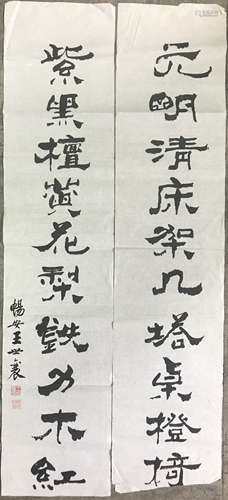 元明清床架几塔桌橙椅
紫黑檀黄花梨鉄力木红
暢安王世襄